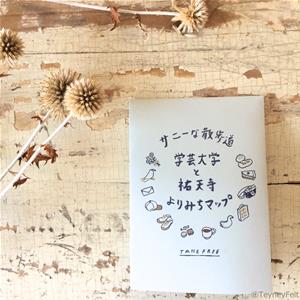 サニーな散歩道
学芸大学
と
祐天寺
よりみちマップ
TAKE FREE
@TeyneyFelt